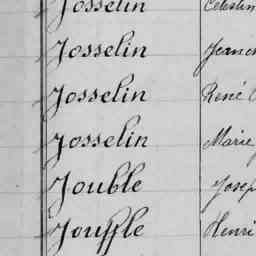 Josselin Célestin
Josselin
Josselin René
Josselin Marie
Jouble
Jouffle Henri